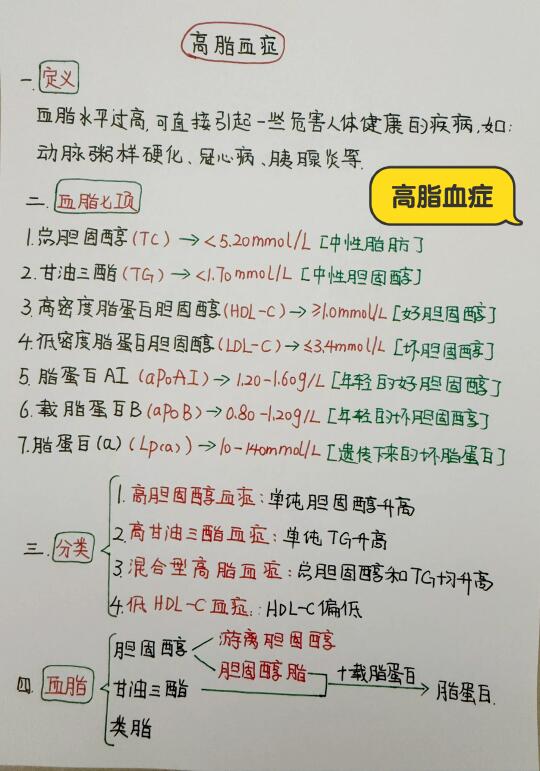 高脂血症
一.定义
血脂水平过高,可直接引起一些危害人体健康的疾病,如:
动脉粥样硬化、冠心病、胰腺炎等.
高脂血症
二.血脂七项
1.总胆固醇(TC)→<5.20mmol/L[中性脂肪]
2.甘油三酯(TG)→<1.70mmol/L[中性胆固醇]
3.高密度脂蛋白胆固醇(HDL-C)→≥1.0mmol/L[好胆固醇]
4.低密度脂蛋白胆固醇(LDL-C)→≤3.4mmol/L[坏胆固醇]
5.脂蛋白AI(apoAI)→1.20-1.60g/L[年轻的好胆固醇]
6.载脂蛋白B(apoB)→0.80-1.20g/L[年轻的坏胆固醇]
7.脂蛋白(a)(Lp(a))→10-140mmol/L[遗传下来的坏脂蛋白]
三.分类
1.高胆固醇血症:单纯胆固醇升高
2.高甘油三酯血症:单纯TG升高
3.混合型高脂血症:总胆固醇和TG均升高
4.低HDL-C血症:HDL-C偏低
四.血脂
胆固醇
游离胆固醇
胆固醇脂
甘油三酯
+载脂蛋白→脂蛋白.
类脂